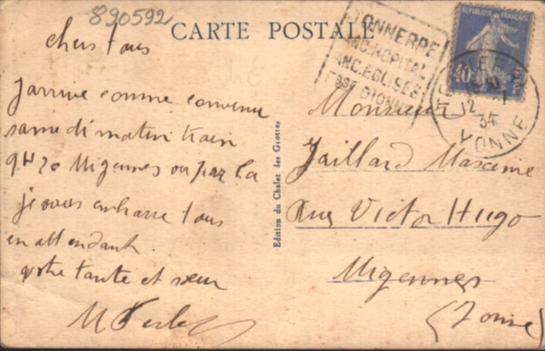 890592
CARTE POSTALE
chers tous
J'arrive comme convenu
samedi matin train
9H20 Migennes ou par la
je vous embrasse tous
en attendant.
votre tante et sœur
Edition du Chalet des Grottes
TONNERRE
ANC. HOPITAL
ANC. EGLISES
FSSE DIONNE
REPUBLIQUE FRANÇAISE
40
12
34
YONNE
Monsieur
Jaillard Maxime
Rue Victor Hugo
Migennes
(Yonne)